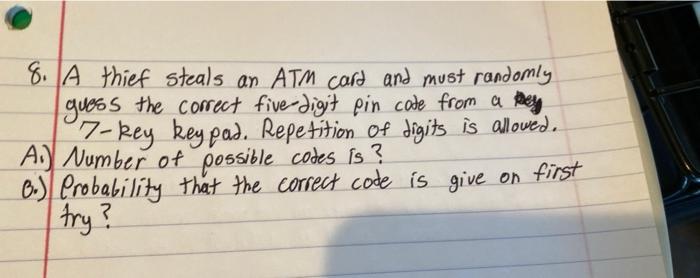 8. A thief steals an ATM card and must randomly
guess the correct five-digit pin code from a key
7-key key pad. Repetition of digits is allowed.
A.) Number of possible codes is?
B.) Probability that the correct code is give on first
try?